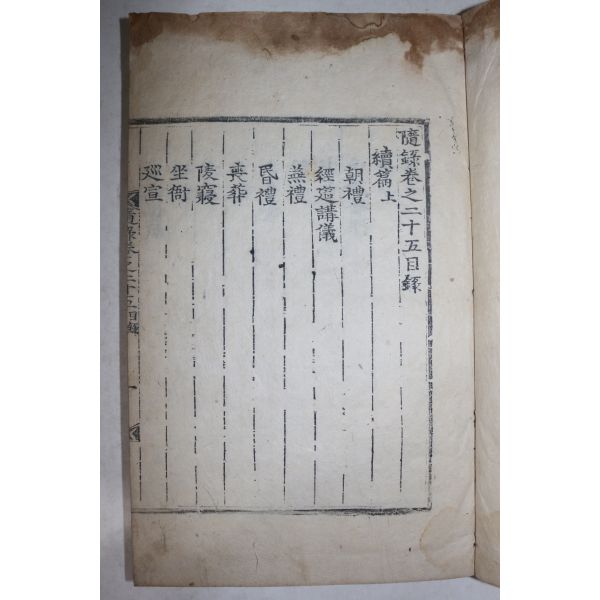 隨錄卷之二十五目錄
續篇上
朝禮
經筵講儀
燕禮
昏禮
喪葬
陵寢
坐衙
廵宣
隨錄卷之二十五目錄